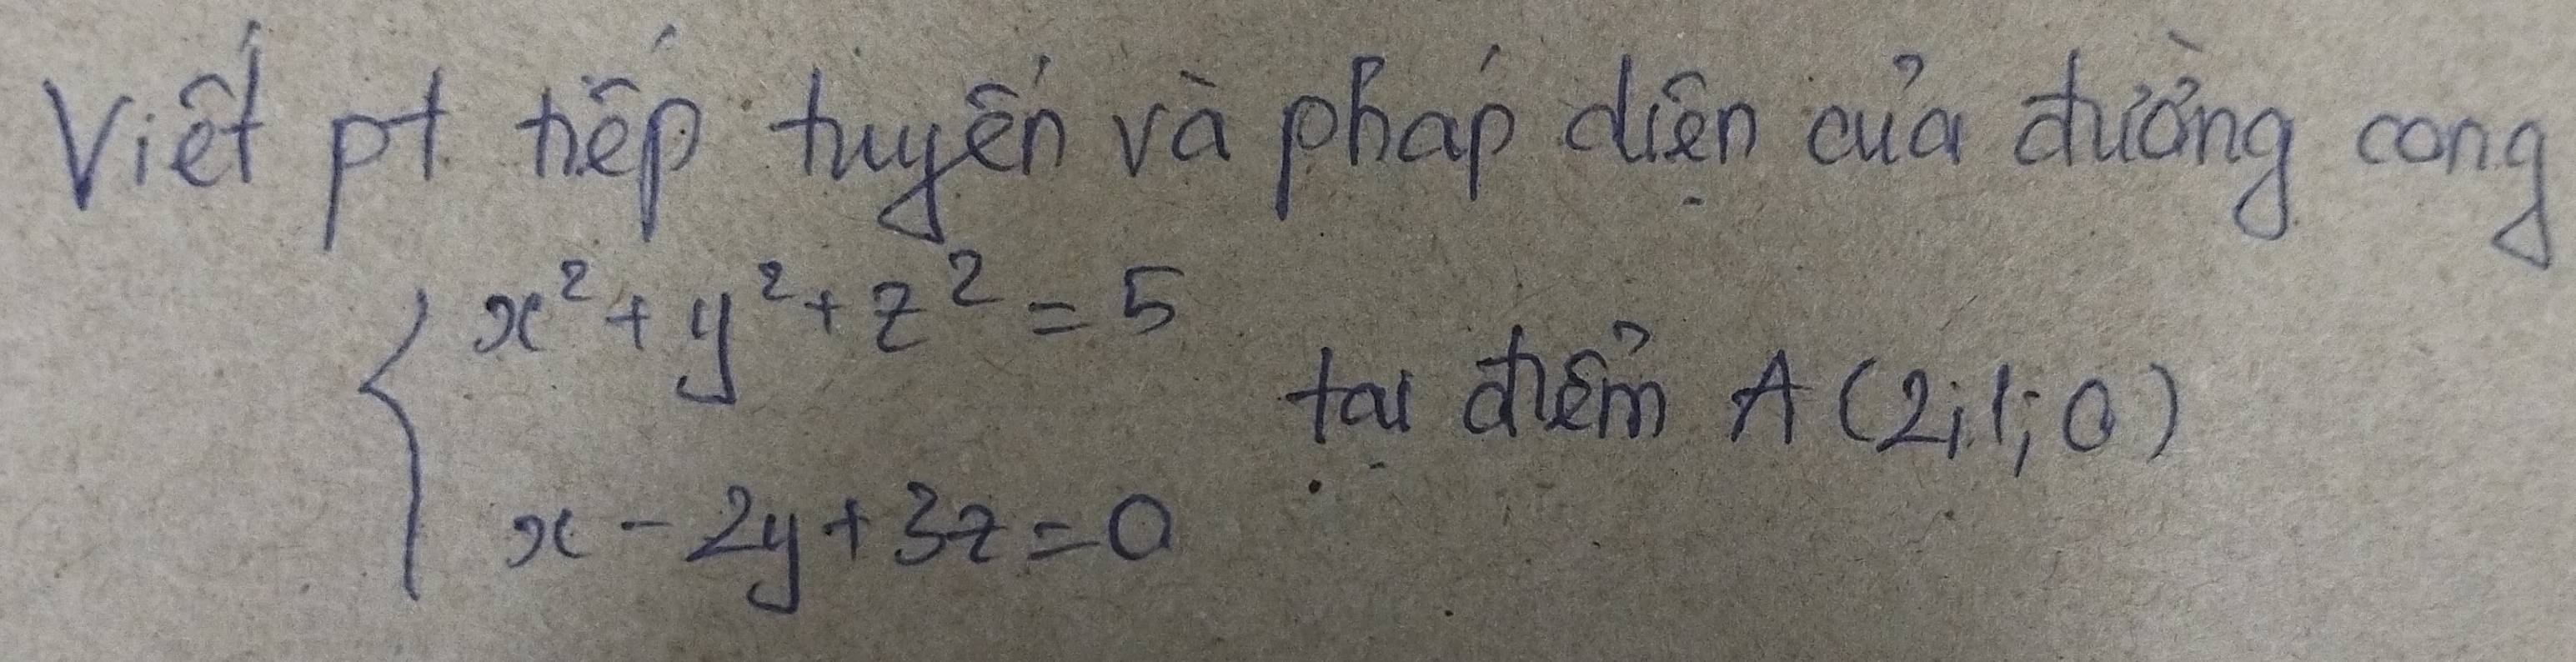 Viết pt tiếp tuyến và pháp diện của đường cong
x² + y² + z² = 5
tại điểm A(2;1;0)
x - 2y + 3z = 0